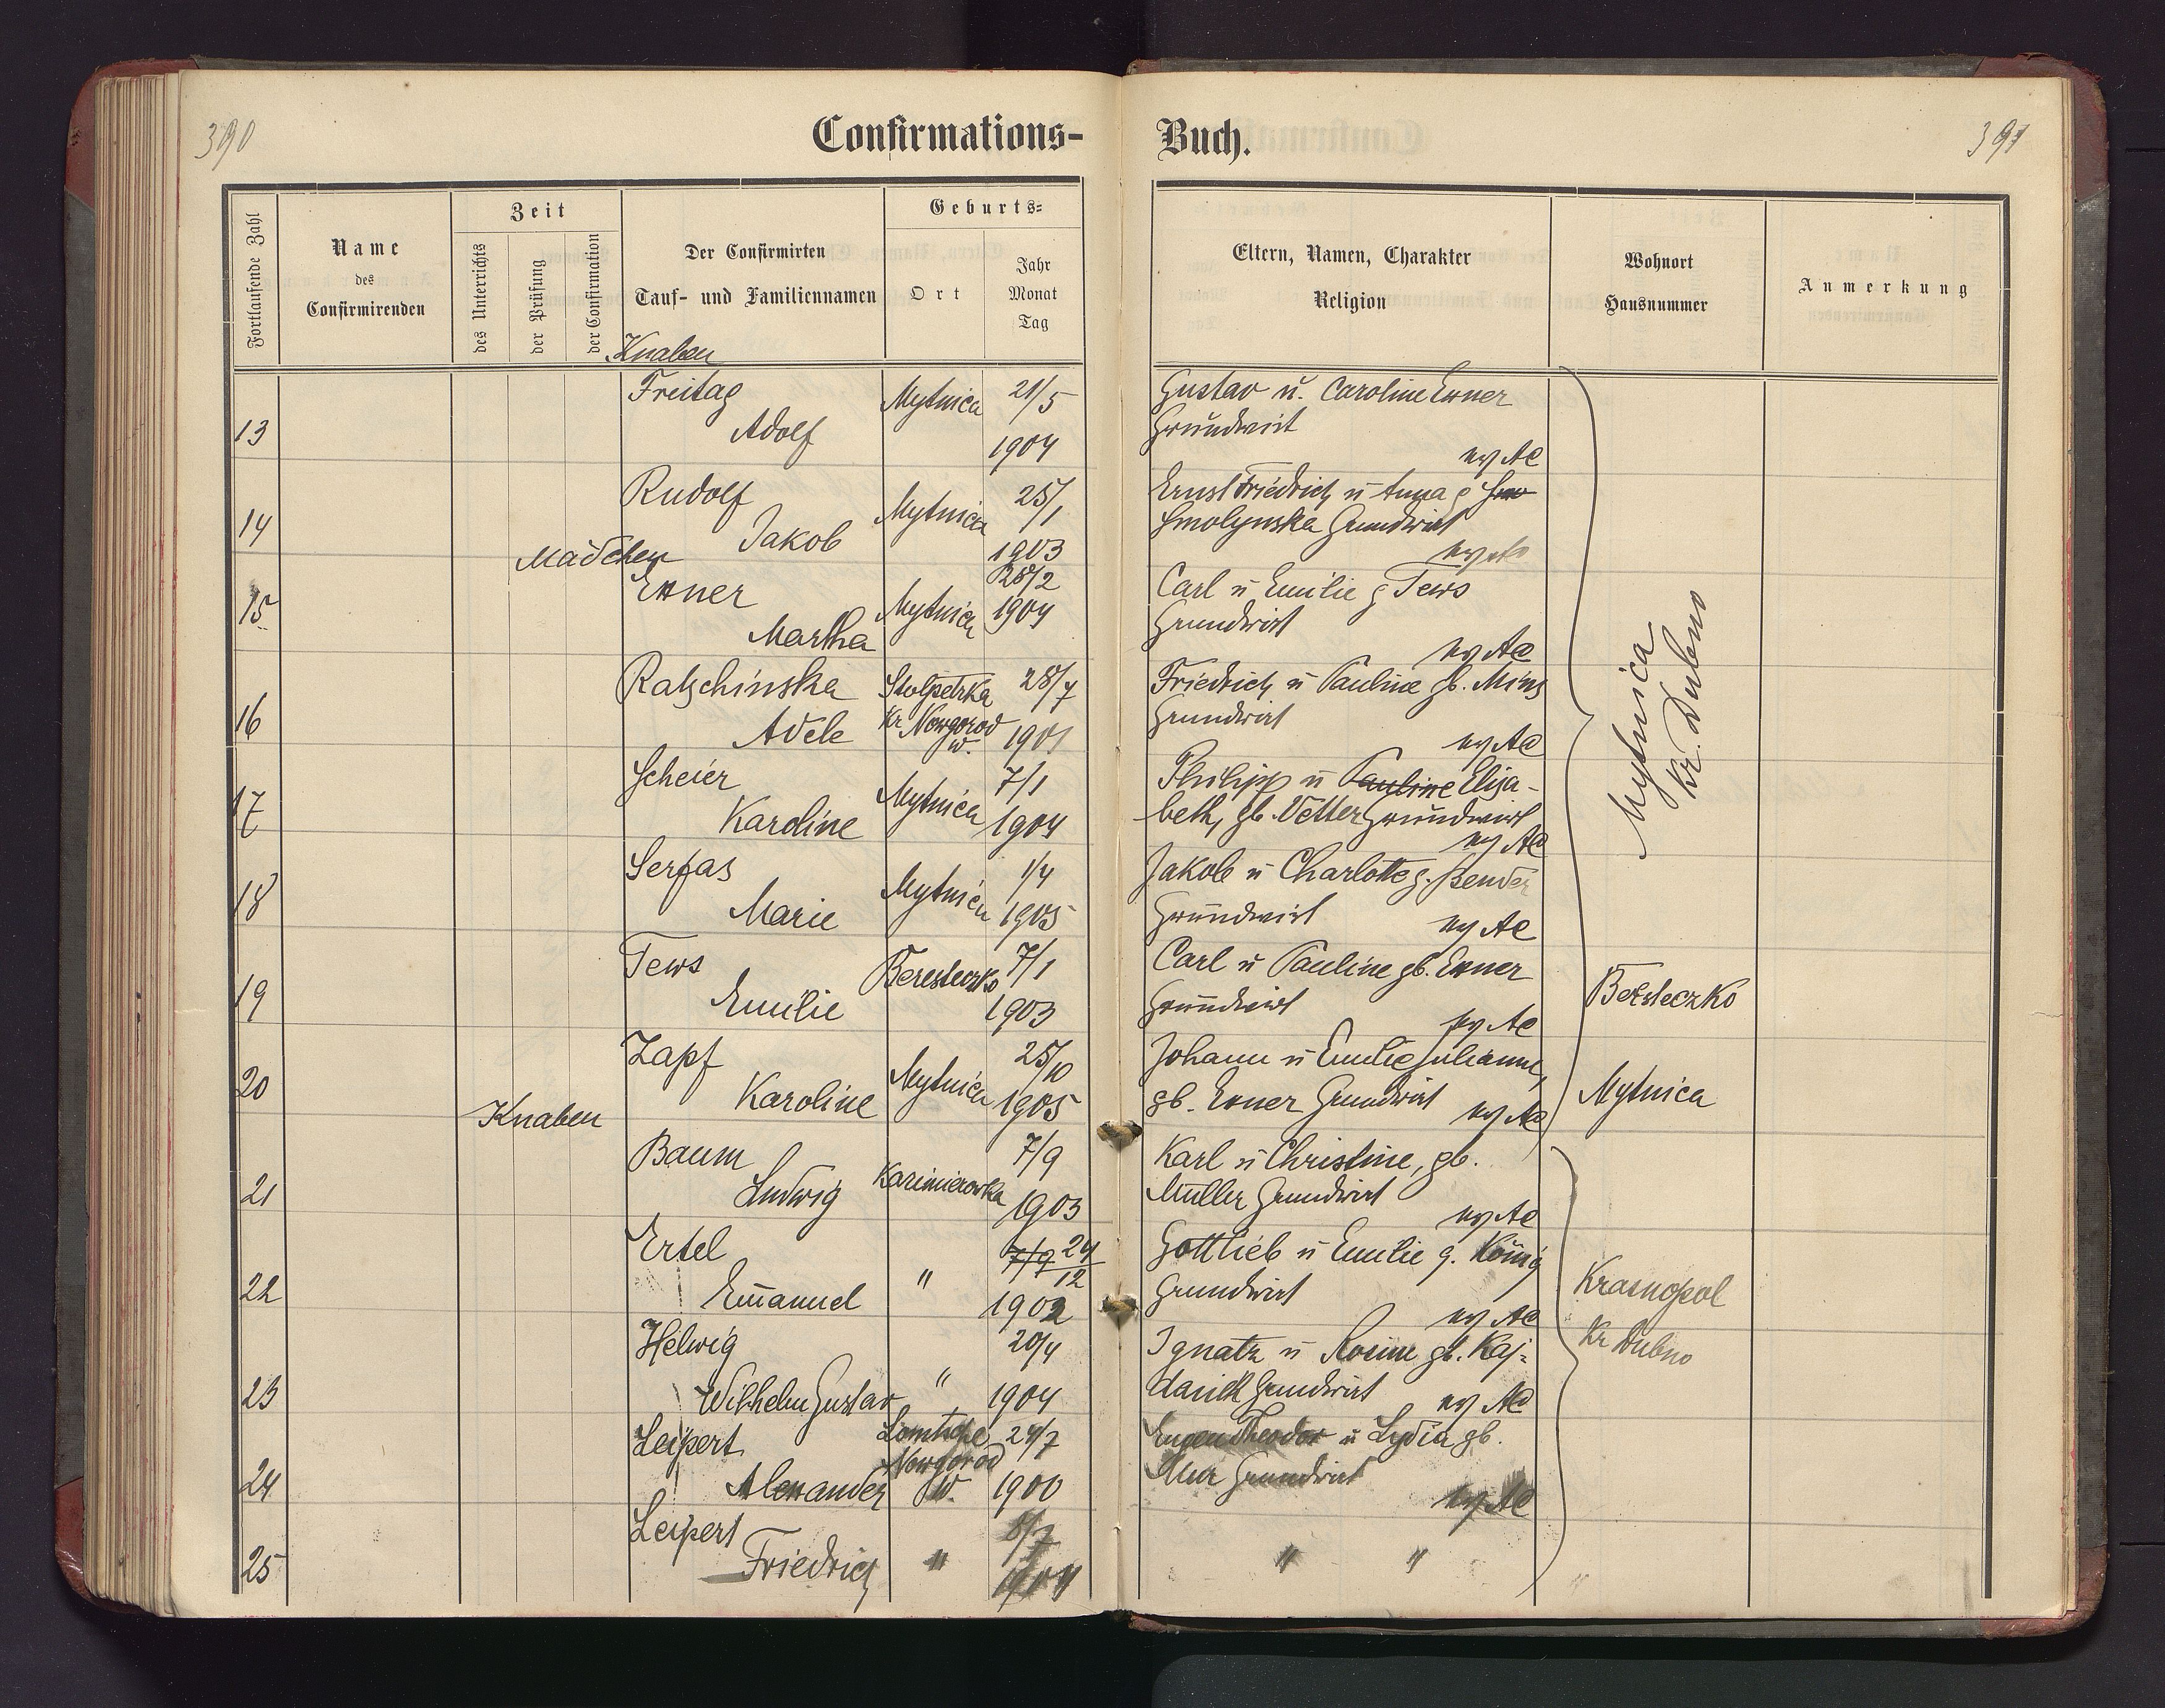 390
Confirmations-
Buch.
391
Fortlaufende Zahl
Name
des
Confirmirenden
Zeit
des Unterrichts
der Prüfung
der Confirmation
Der Confirmirten
Tauf- und Familiennamen
Geburts-
Ort
Jahr
Monat
Tag
Eltern, Namen, Charakter
Religion
Wohnort
Hausnummer
Anmerkung
Knaben
13
Freitag
Adolf
Mytnica
21/5
1904
Gustav u. Caroline Exner
Grundwirt
ev AC
14
Rudolf
Jakob
Mytnica
25/1
1903
Ernst Friedrich u Anna g
Smolynska Grundwirt
Mädchen
15
Exner
Martha
Mytnica
28/2
1904
Carl u Emilie g Tews
Grundwirt
ev AC
16
Ratschinska
Adele
Stolpetzka
Kr Nowgorod
w.
28/7
1901
Friedrich u Pauline gb. Mins
Grundwirt
ev AC
17
Scheier
Karoline
Mytnica
7/1
1904
Philipp u Pauline Elisa-
beth, gb. Vetter Grundwirt
ev AC
18
Serfas
Marie
Mytnica
1/4
1905
Jakob u Charlotte g. Bender
Grundwirt
ev AC
Mytnica
Kr. Dubno
19
Tews
Emilie
Beresteczko
7/1
1903
Carl u Pauline gb. Exner
Grundwirt
ev AC
Beresteczko
20
Zapf
Karoline
Mytnica
25/10
1905
Johann u Emilie Julianne,
gb. Exner Grundwirt
ev AC
Mytnica
Knaben
21
Baum
Ludwig
Kazimierowka
7/9
1903
Karl u Christine, gb.
Müller Grundwirt
ev AC
22
Ertel
Emanuel
"
7/9 24/12
1902
Gottlieb u Emilie g. König
Grundwirt
ev AC
Krasnopol
Kr Dubno
23
Helwig
Wilhelm Gustav
"
20/4
1904
Ignatz u Rosine gb. Kaj-
Grundwirt
ev AC
24
Leipert
Alexander
Nowgorod
W.
24/7
1900
Eugen Theodor u Lydia gb.
Grundwirt
ev AC
25
Leipert
Friedrich
"
8/7
" "